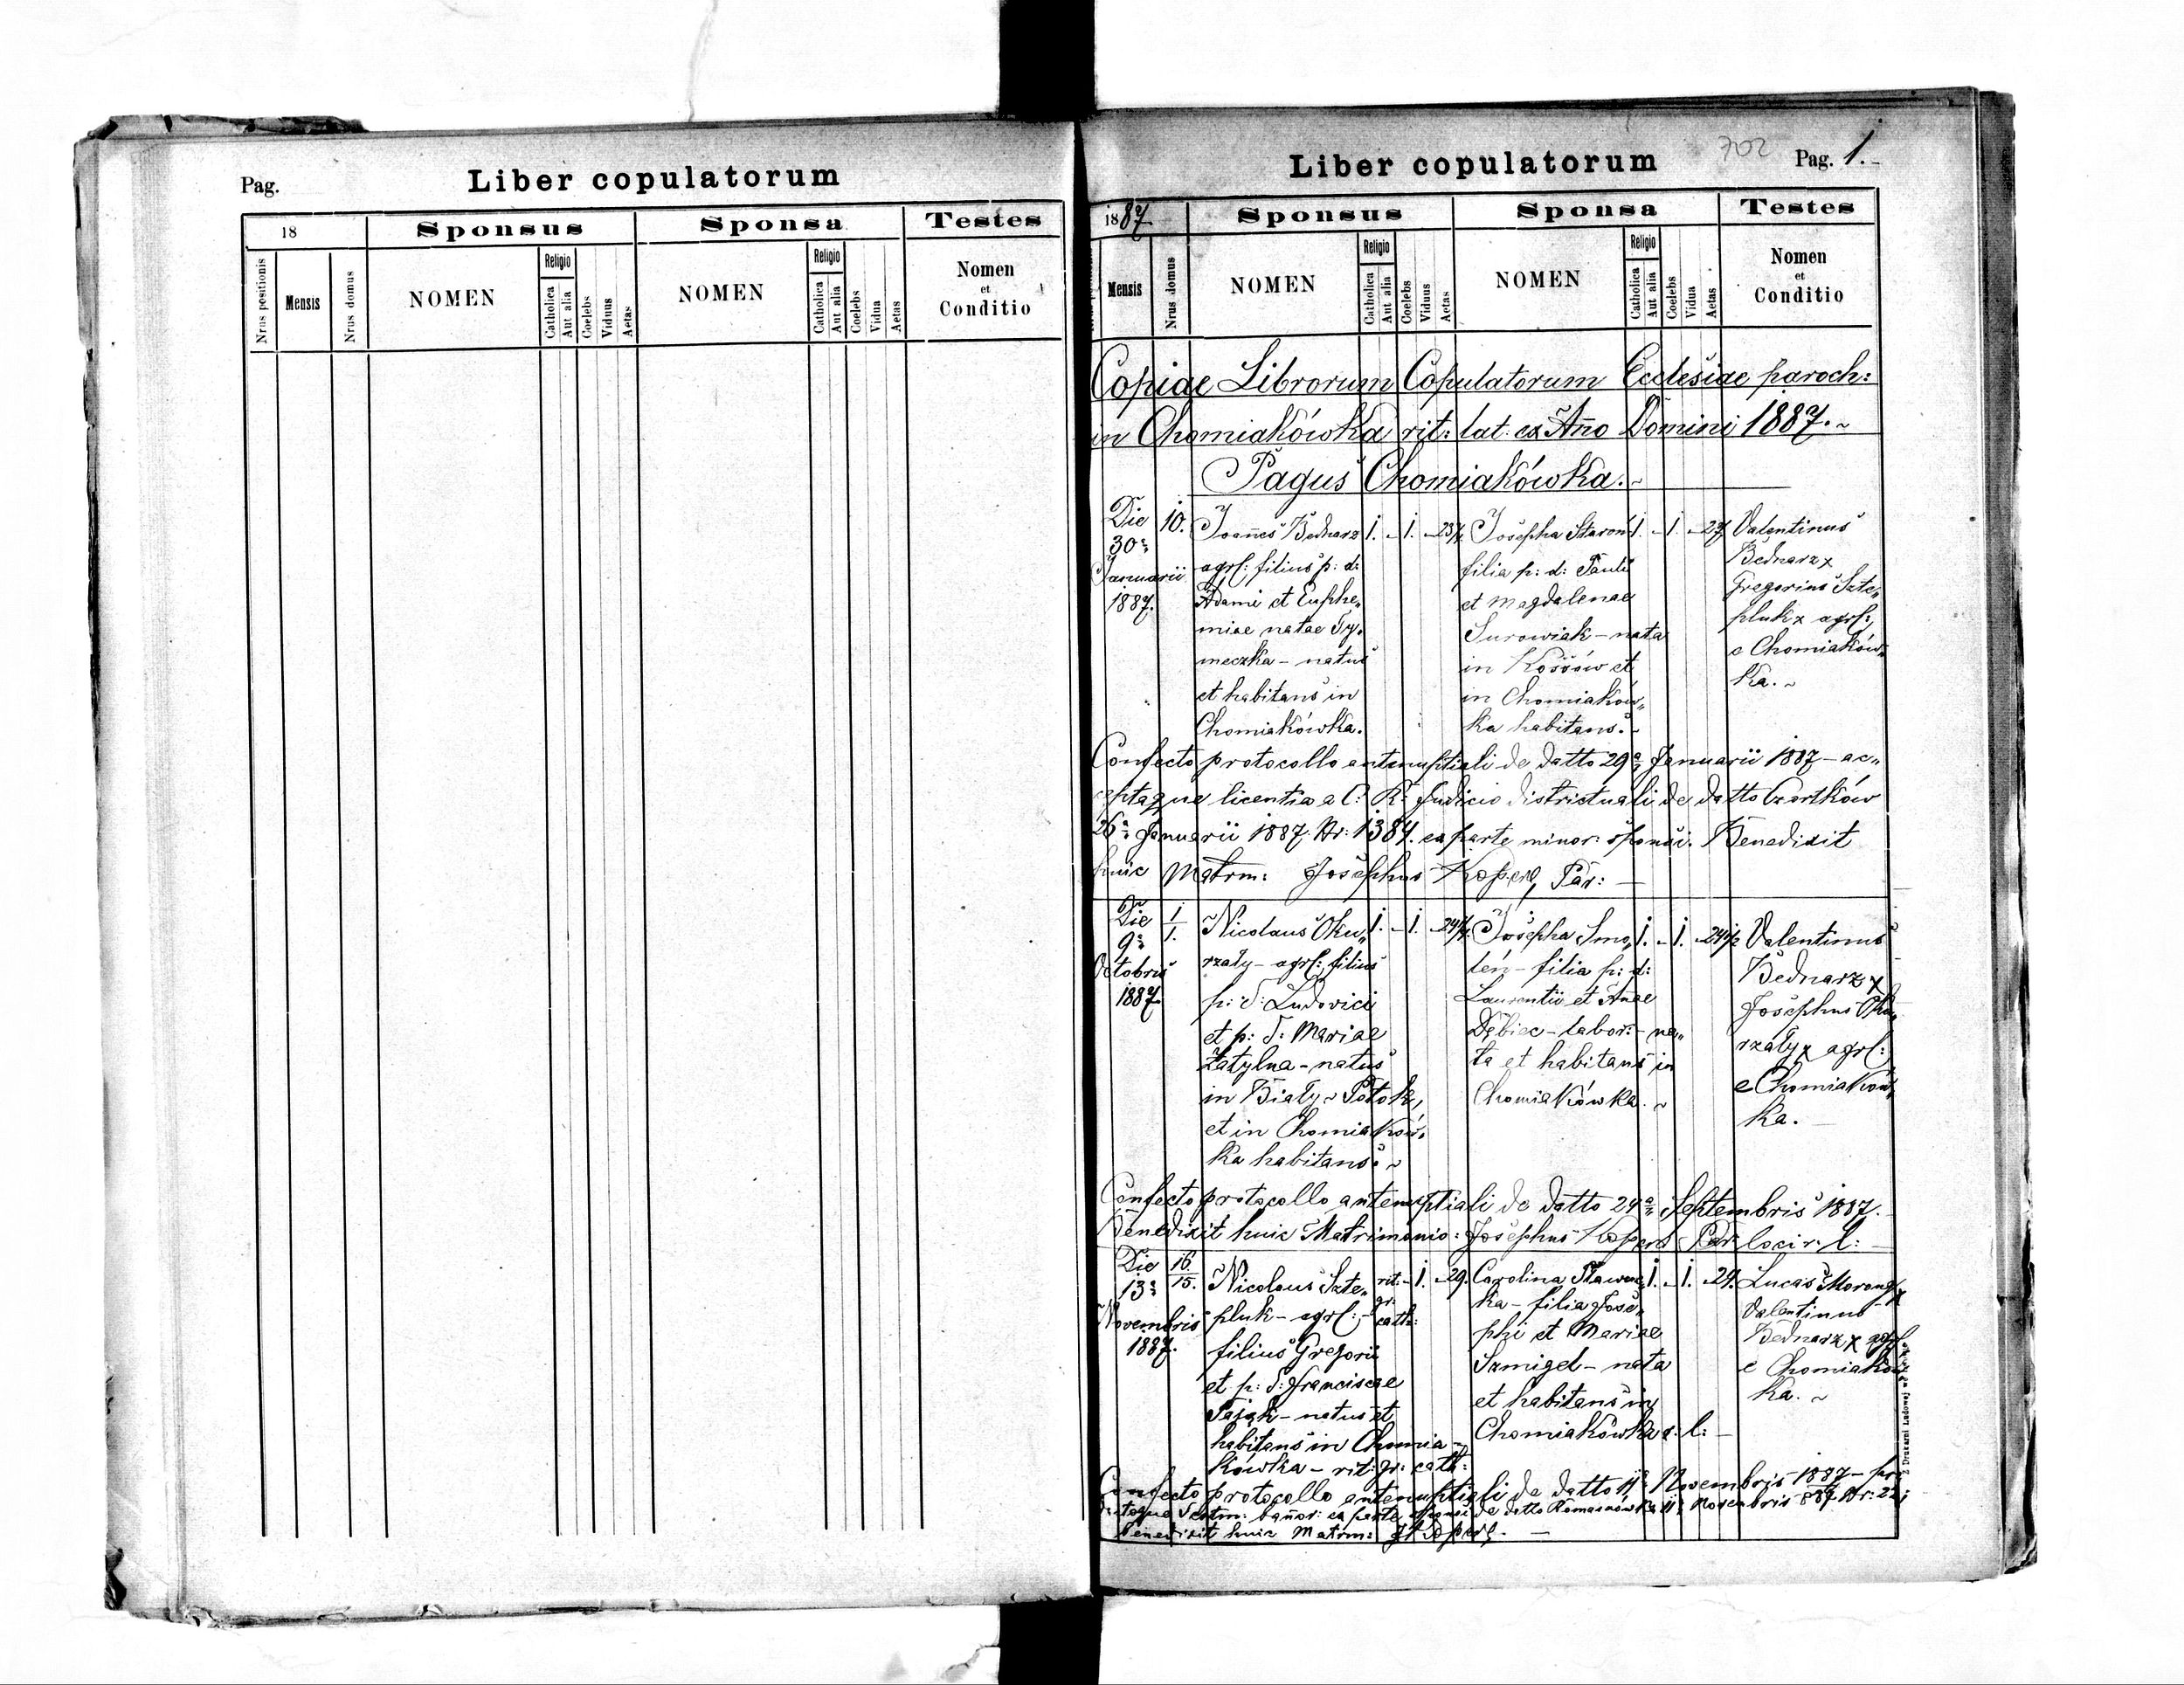 Pag.
Liber copulatorum
18
Sponsus
Sponsa
Testes
Nrus positionis
Mensis
Nrus domus
NOMEN
Religio
Catholica
Aut alia
Coelebs
Viduus
Aetas
NOMEN
Religio
Catholica
Aut alia
Coelebs
Vidua
Aetas
Nomen
et
Conditio
Liber copulatorum
702
Pag. 1.
1887
Sponsus
Sponsa
Testes
Mensis
Nrus domus
NOMEN
Religio
Catholica
Aut alia
Coelebs
Viduus
Aetas
NOMEN
Religio
Catholica
Aut alia
Coelebs
Vidua
Aetas
Nomen
et
Conditio
Copiae Librorum Copulatorum Ecclesiae paroch:
in Chomiakówka rit: lat: ex Año Domini 1887.
Pagus Chomiakówka.
Die
30a
Januarii
1887.
10.
Joañes Bednarz
agrl: filius p: d:
Adami et Euphe„
miae natae Ty„
meczka – natus
et habitans in
Chomiakówka.
1. – 1. –
Josepha Staroń
filia p: d: Pauli
et Magdalenae
Surowiak – nata
in Kossów et
in Chomiaków„
ka habitans.
1. – 1. – 27
Valentinus
Bednarz x
Gregorius Szte„
pluk x agrl:
e Chomiaków„
ka.
Confecto protocollo antenuptiali de datto 29a Januarii 1887 – ac„
ceptaque licentia a C: R: Judicio districtuali de datto Czortków
26a Januarii 1887. Nr: 1384. ex parte minor: sponsi. Benedixit
huic Matrm: Josephus Koperl, Par:
Die
9a
Octobris
1887
1/1.
Nicolaus Oku„
rzały – agrl: filius
p: d: Ludovici
et p: d: Mariae
Zatylna – natus
in Biały – Potok,
et in Chomiaków„
ka habitans.
1. – 1. – 24
Josepha Smo„
leń – filia p: d:
Laurentii et Añae
Dębiec – labor: – na„
ta et habitans in
Chomiakówka.
1. – 1. – 24 1/2
Valentinus
Bednarz x
Josephus Oku„
rzały x agrl:
e Chomiaków„
ka.
Confecto protocollo antenuptiali de datto 24a Septembris 1887.
Benedixit huic Matrimonio: Josephus Koperl Par: loci r: l:
Die
13a
Novembris
1887.
16/15.
Nicolaus Szte„
pluk – agrl: –
filius Gregorii
et p: d: Franciscae
Pająk – natus et
habitans in Chomia„
kówka – rit: gr: cath:
rit: – 1. – 29.
gr:
cath:
Carolina Sławec„
ka – filia Jose„
phi et Mariae
Szmigel – nata
et habitans in
Chomiakówka r: l:
1. – 1. – 24.
Lucas Morong x
Valentinus
Bednarz x agrl:
e Chomiaków„
ka.
Confecto protocollo antenuptiali de datto 11a Novembris 1887 –
bañor: ex parte sponsi de datto Romaszówka 11a Novembris 887. Nr: 22;
Benedixit huic Matrm: J Koperl.